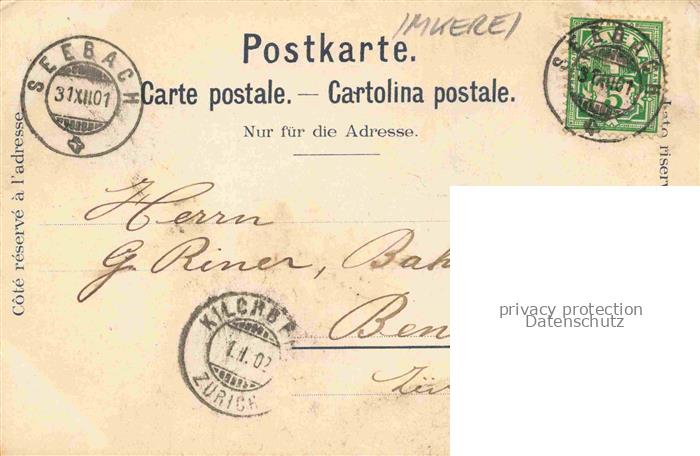 IMKEREI
Postkarte.
Carte postale. — Cartolina postale.
Nur für die Adresse.
SEEBACH
31.XII.01
SEEBACH
31.XII.01
5
Côté réservé à l'adresse.
Lato riserv
Herrn
G. Riner, Bah
Ben
KILCHBE
1.I.02
ZÜRICH
privacy protection
Datenschutz